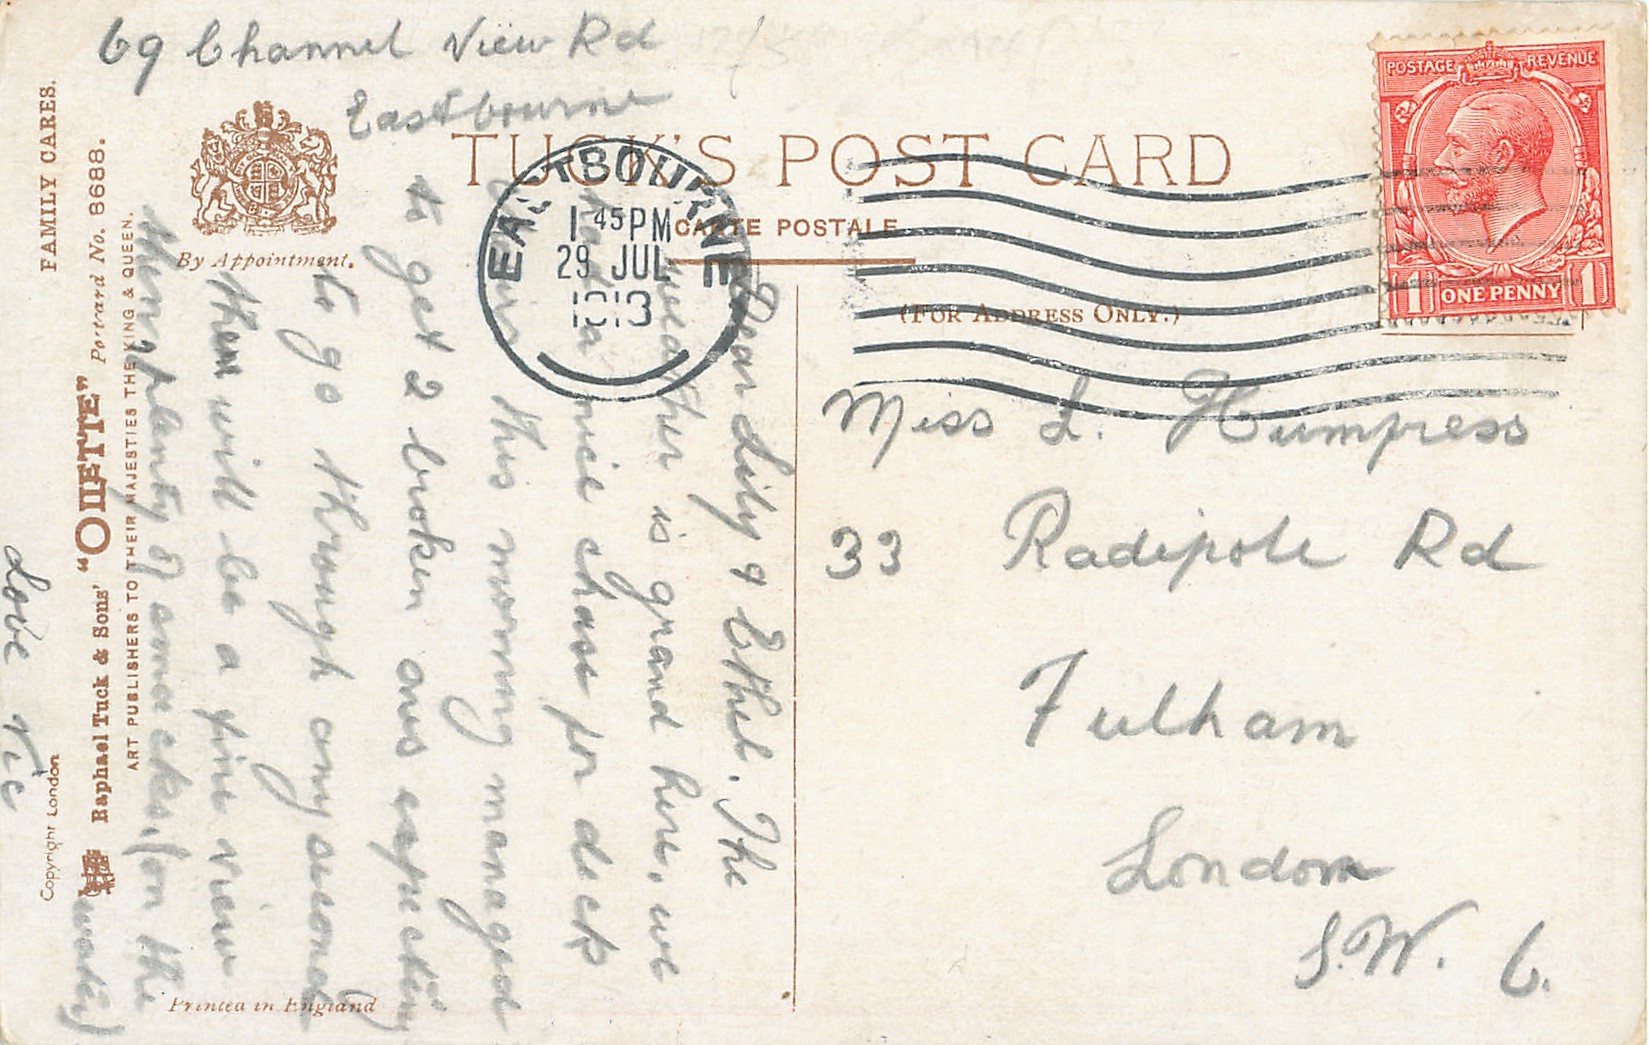 69 Channel View Rd
Eastbourne
TUCK'S POST CARD
CARTE POSTALE
(FOR ADDRESS ONLY.)
By Appointment.
EASTBOURNE
1 45PM
29 JUL
POSTAGE REVENUE
1 ONE PENNY 1
Dear Lily & Ethel. The
weather is grand here, we
had a nice chase for deck
this morning managed
to get 2 broken ones expecting
to go through any second
then will be a fine view
plenty of smacks, (on the
water)
Love Vic
Miss L. Humpress
33 Radipole Rd
Fulham
London
S.W. 6.
FAMILY CARES.
Raphael Tuck & Sons' "OILETTE" Postcard No. 8688.
ART PUBLISHERS TO THEIR MAJESTIES THE KING & QUEEN.
Copyright London
Printed in England